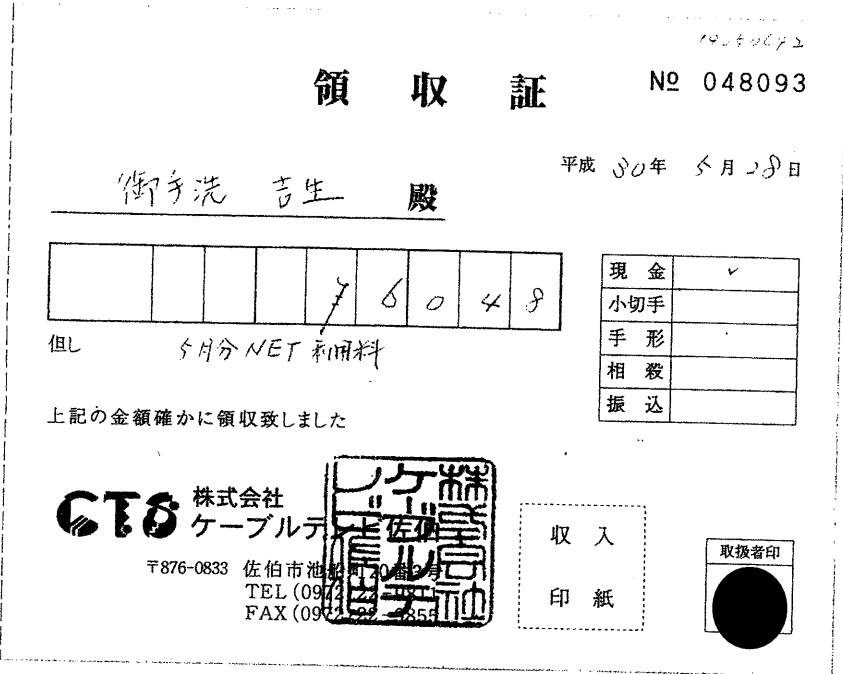 領収証
№ 048093
平成 30年 5月28日
御手洗 吉生 殿
¥6048
現金 ✓
小切手
手形
相殺
振込
但し 5月分NET利用料
上記の金額確かに領収致しました
CTS 株式会社
ケーブルテレビ佐伯
〒876-0833 佐伯市池船町20番3号
TEL(0972)22-
FAX(0972)22-3855
収入
印紙
取扱者印